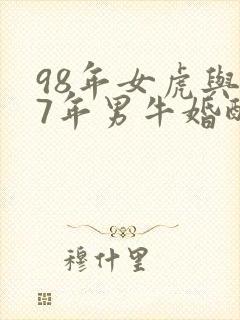 98年女虎與
7年男牛婚配
穆什里